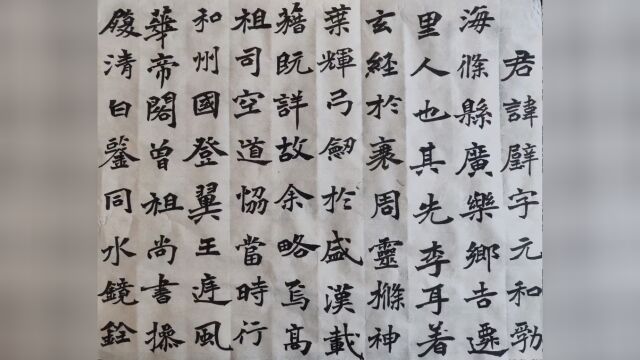 君諱璧字元和勃
海條縣廣樂鄉吉遷
里人也其先李耳著
玄經於衰周靈條神
葉輝弓劒於盛漢載
藉既詳故余略焉高
祖司空道恊當時行
和州國登翼王庭風
華帝閣曾祖尚書操
履清白鑒同水鏡銓